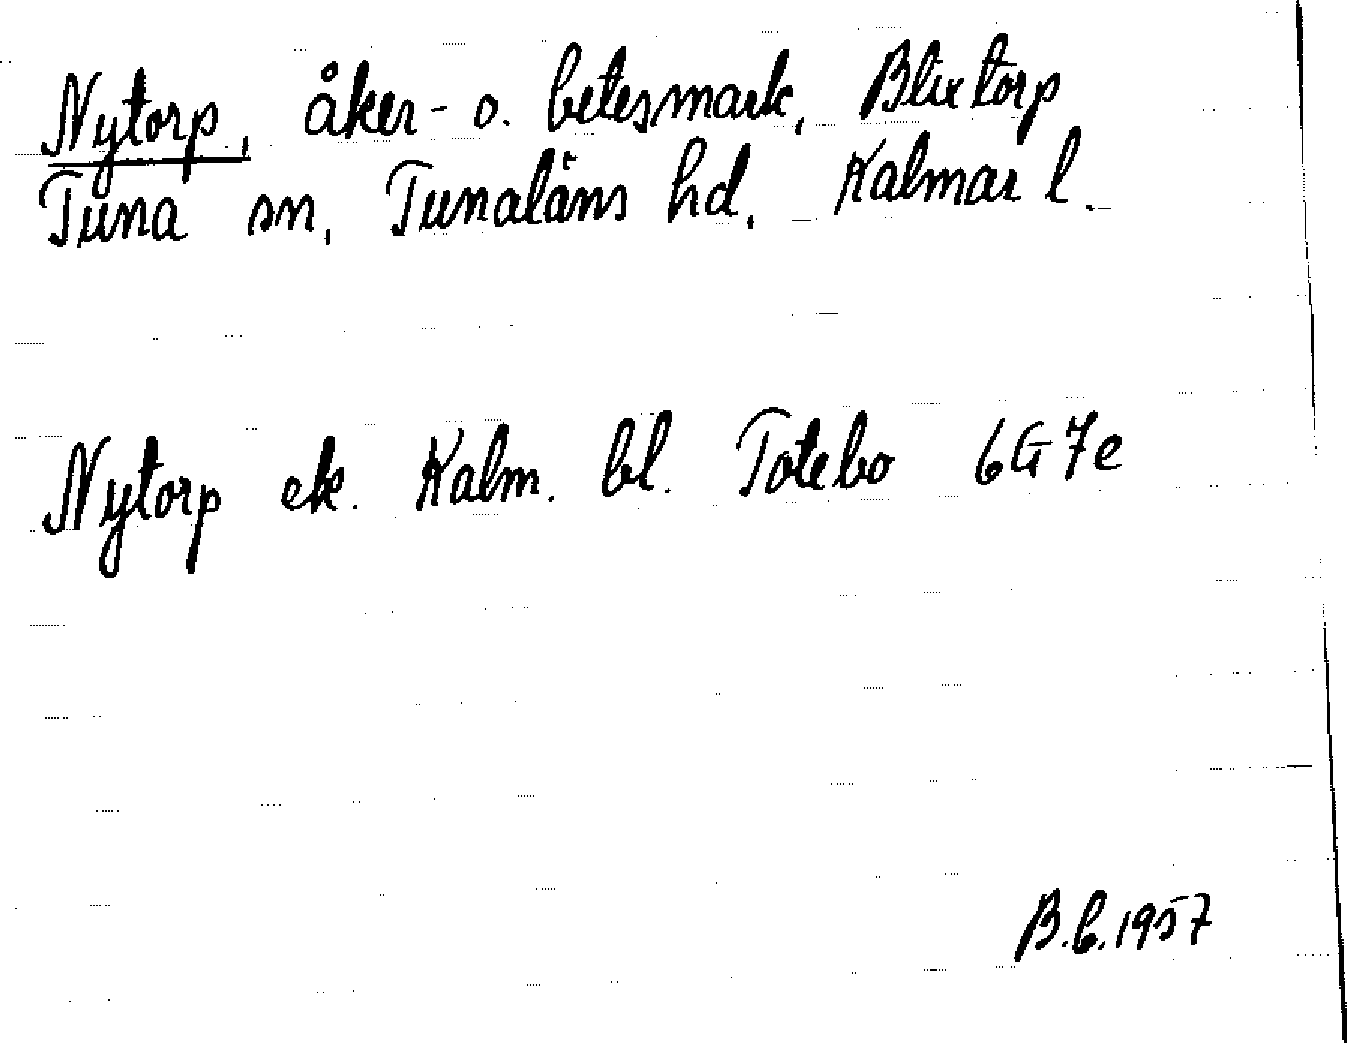 Nytorp, åker- o. betesmark, Blixtorp
Tuna sn, Tunaläns hd, Kalmar l.
Nytorp ek. Kalm. bl. Totebo 6G7e
B.b.1957